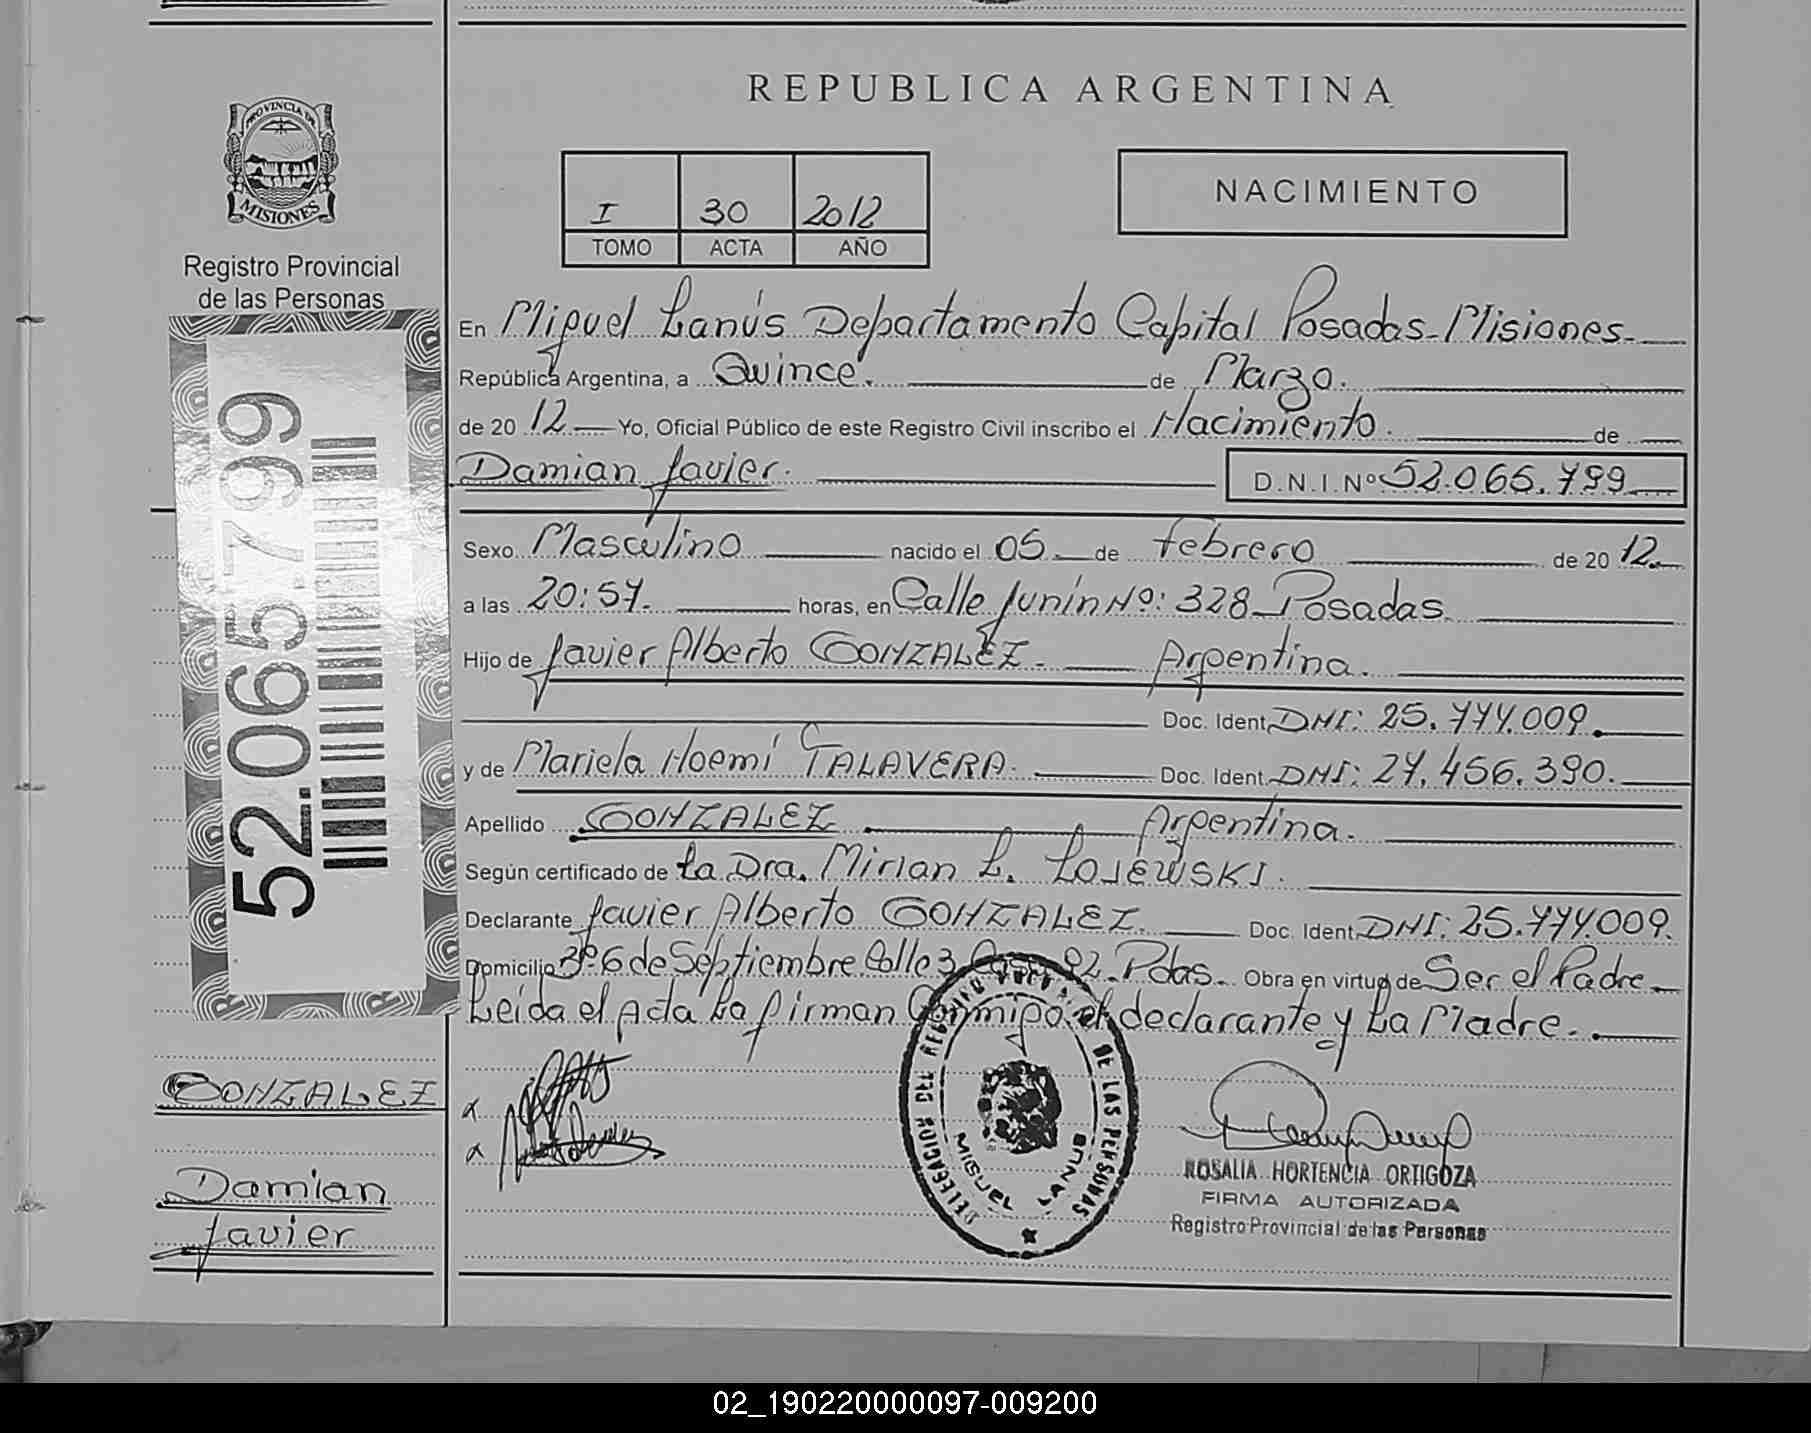 REPUBLICA ARGENTINA
PROVINCIA DE
MISIONES
Registro Provincial
de las Personas
I 30 2012
TOMO ACTA AÑO
NACIMIENTO
52.065.799
En Miguel Lanús Departamento Capital Posadas-Misiones.
República Argentina, a Quince. de Marzo.
de 20 12 Yo, Oficial Público de este Registro Civil inscribo el Nacimiento. de
Damian Javier. D.N.I.Nº 52.065.799
Sexo Masculino nacido el 05 de febrero de 20 12.
a las 20:57. horas, en Calle Junín Nº: 328 Posadas.
Hijo de Javier Alberto GONZALEZ. Argentina.
Doc. Ident. DNI: 25.777.009.
y de Mariela Noemí TALAVERA. Doc. Ident. DNI: 27.456.390.
Apellido GONZALEZ Argentina.
Según certificado de La Dra. Mirian L. LOJEWSKI.
Declarante Javier Alberto GONZALEZ. Doc. Ident. DNI: 25.777.009.
Domicilio 6 de Septiembre Calle 3 Casa 92. Pdas. Obra en virtud de Ser el Padre
Leída el Acta La firman Conmigo el declarante y La Madre.
GONZALEZ
Damian
Javier
x
x
DELEGACION DEL REGISTRO PROVINCIAL DE LAS PERSONAS
MIGUEL LANUS
ROSALIA HORTENCIA ORTIGOZA
FIRMA AUTORIZADA
Registro Provincial de las Personas
02_190220000097-009200